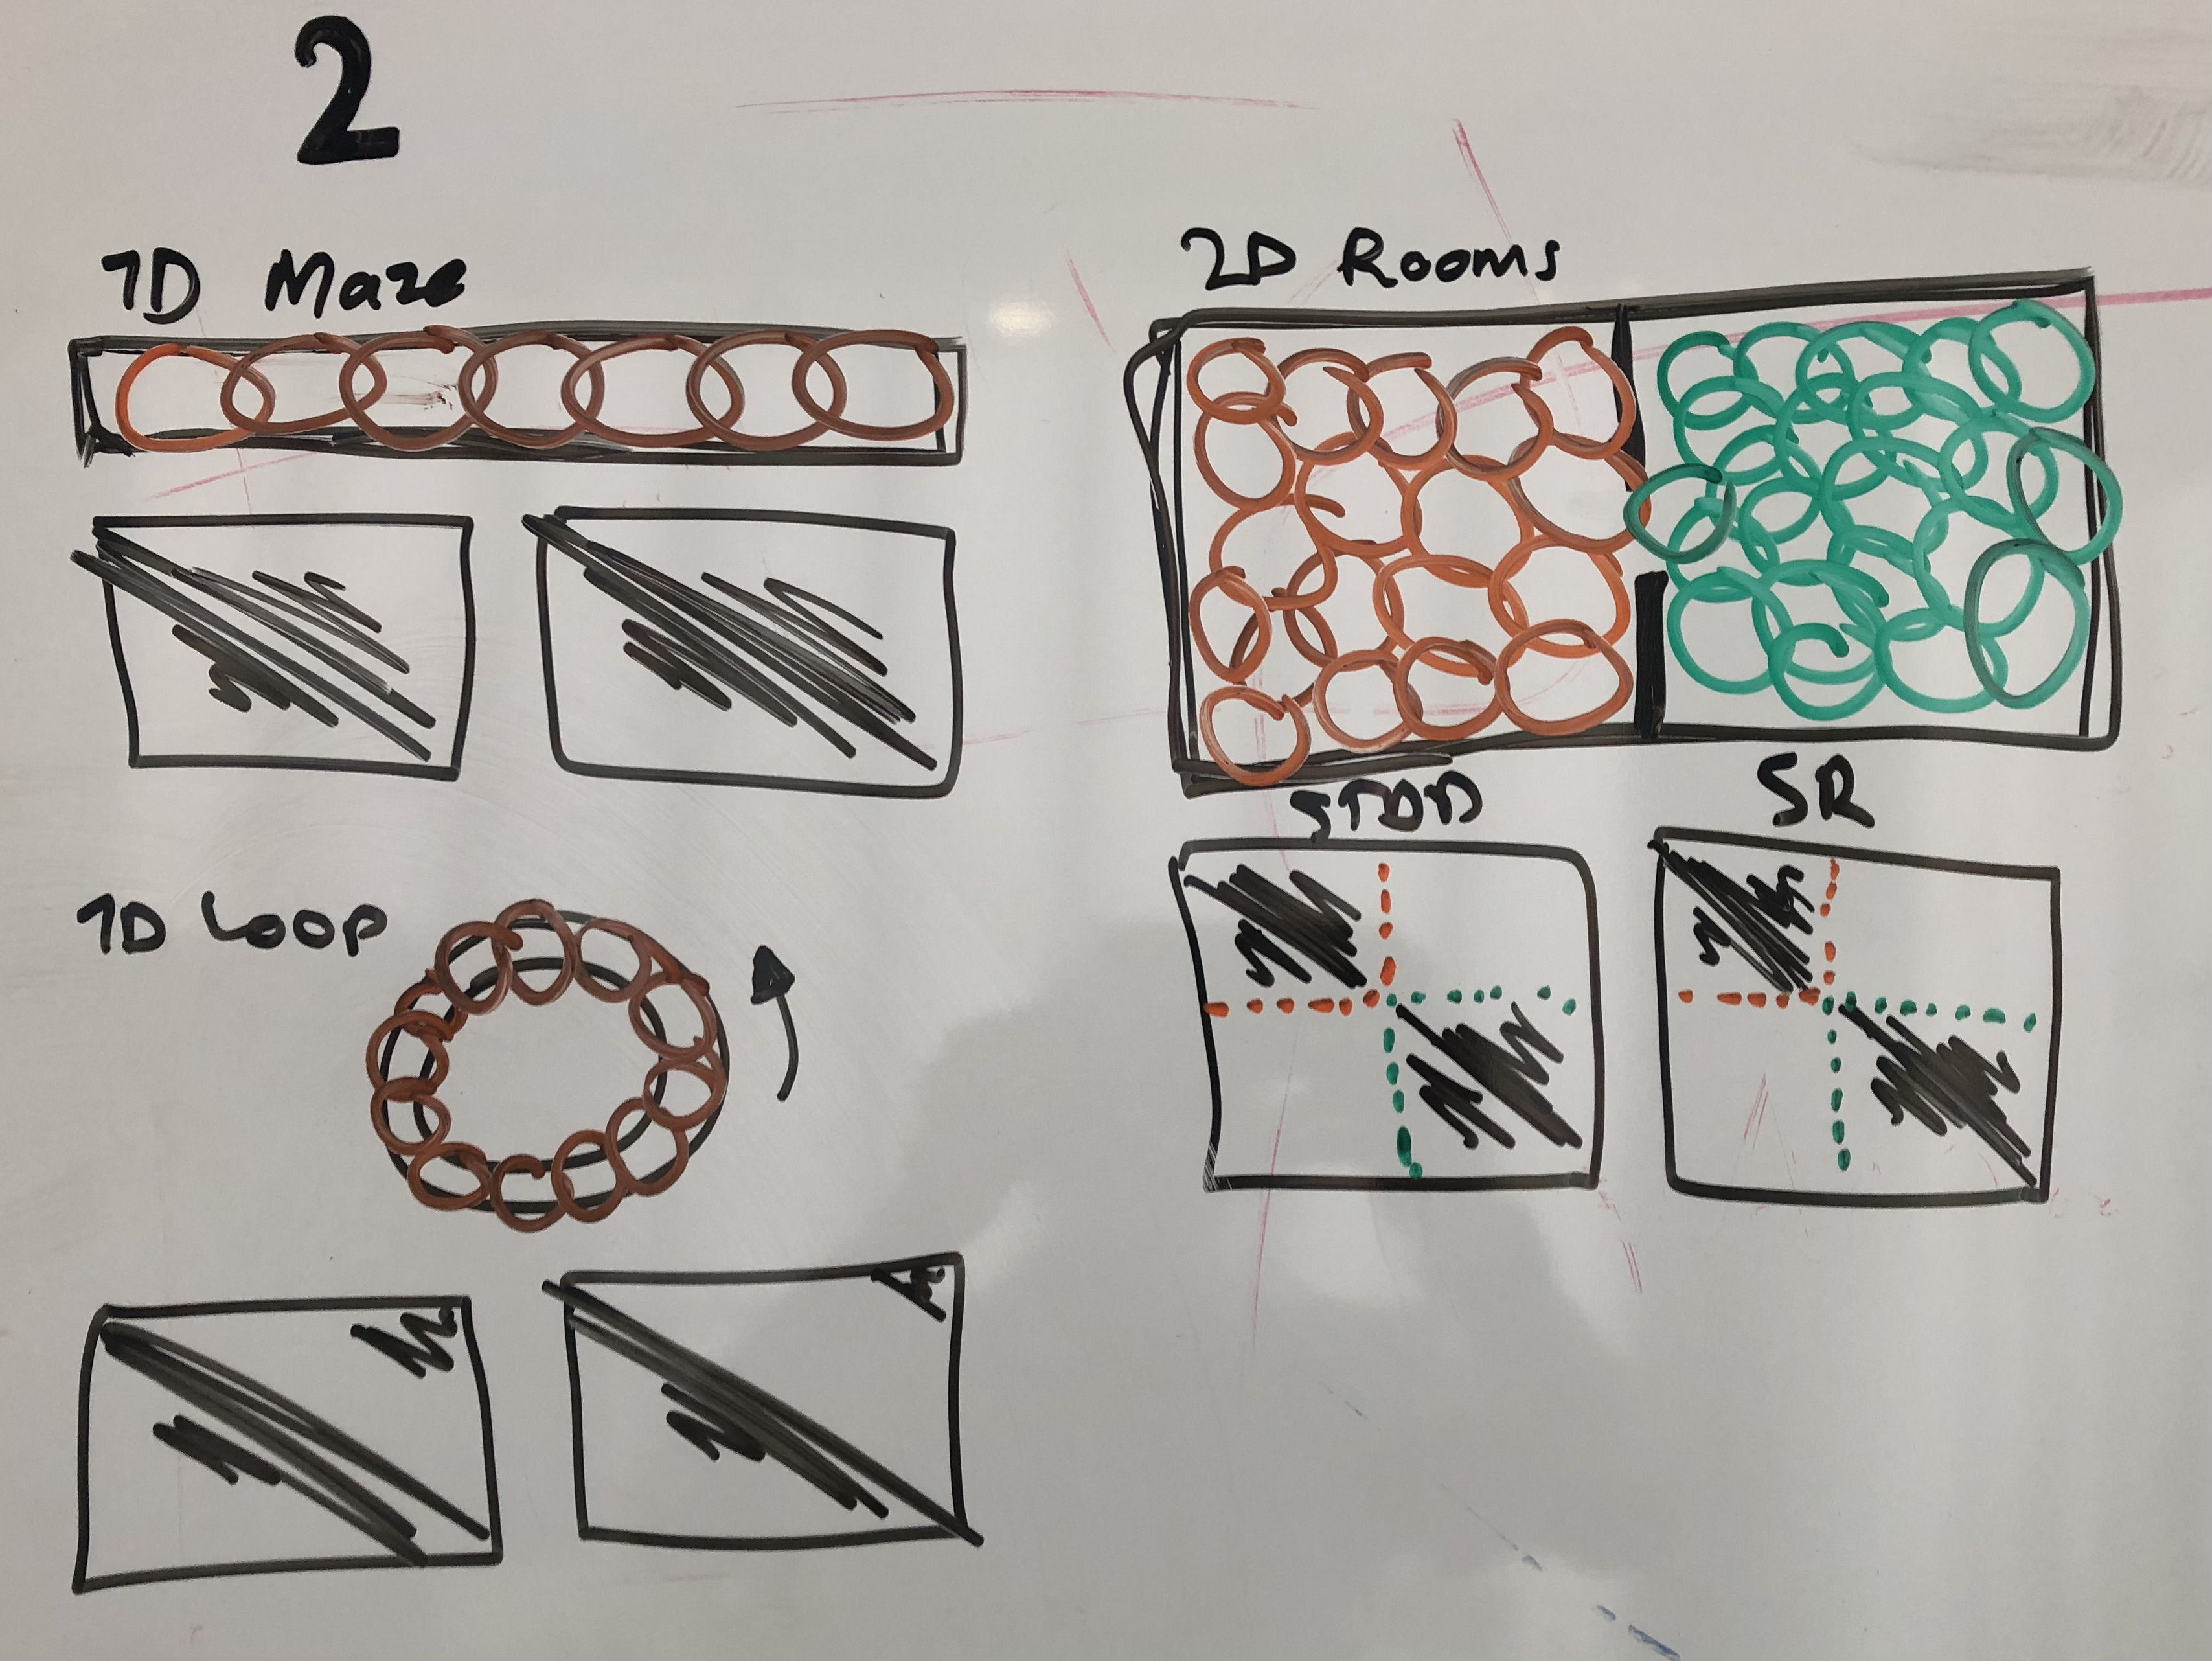 2
1D Maze
2D Rooms
STDP
SR
1D Loop